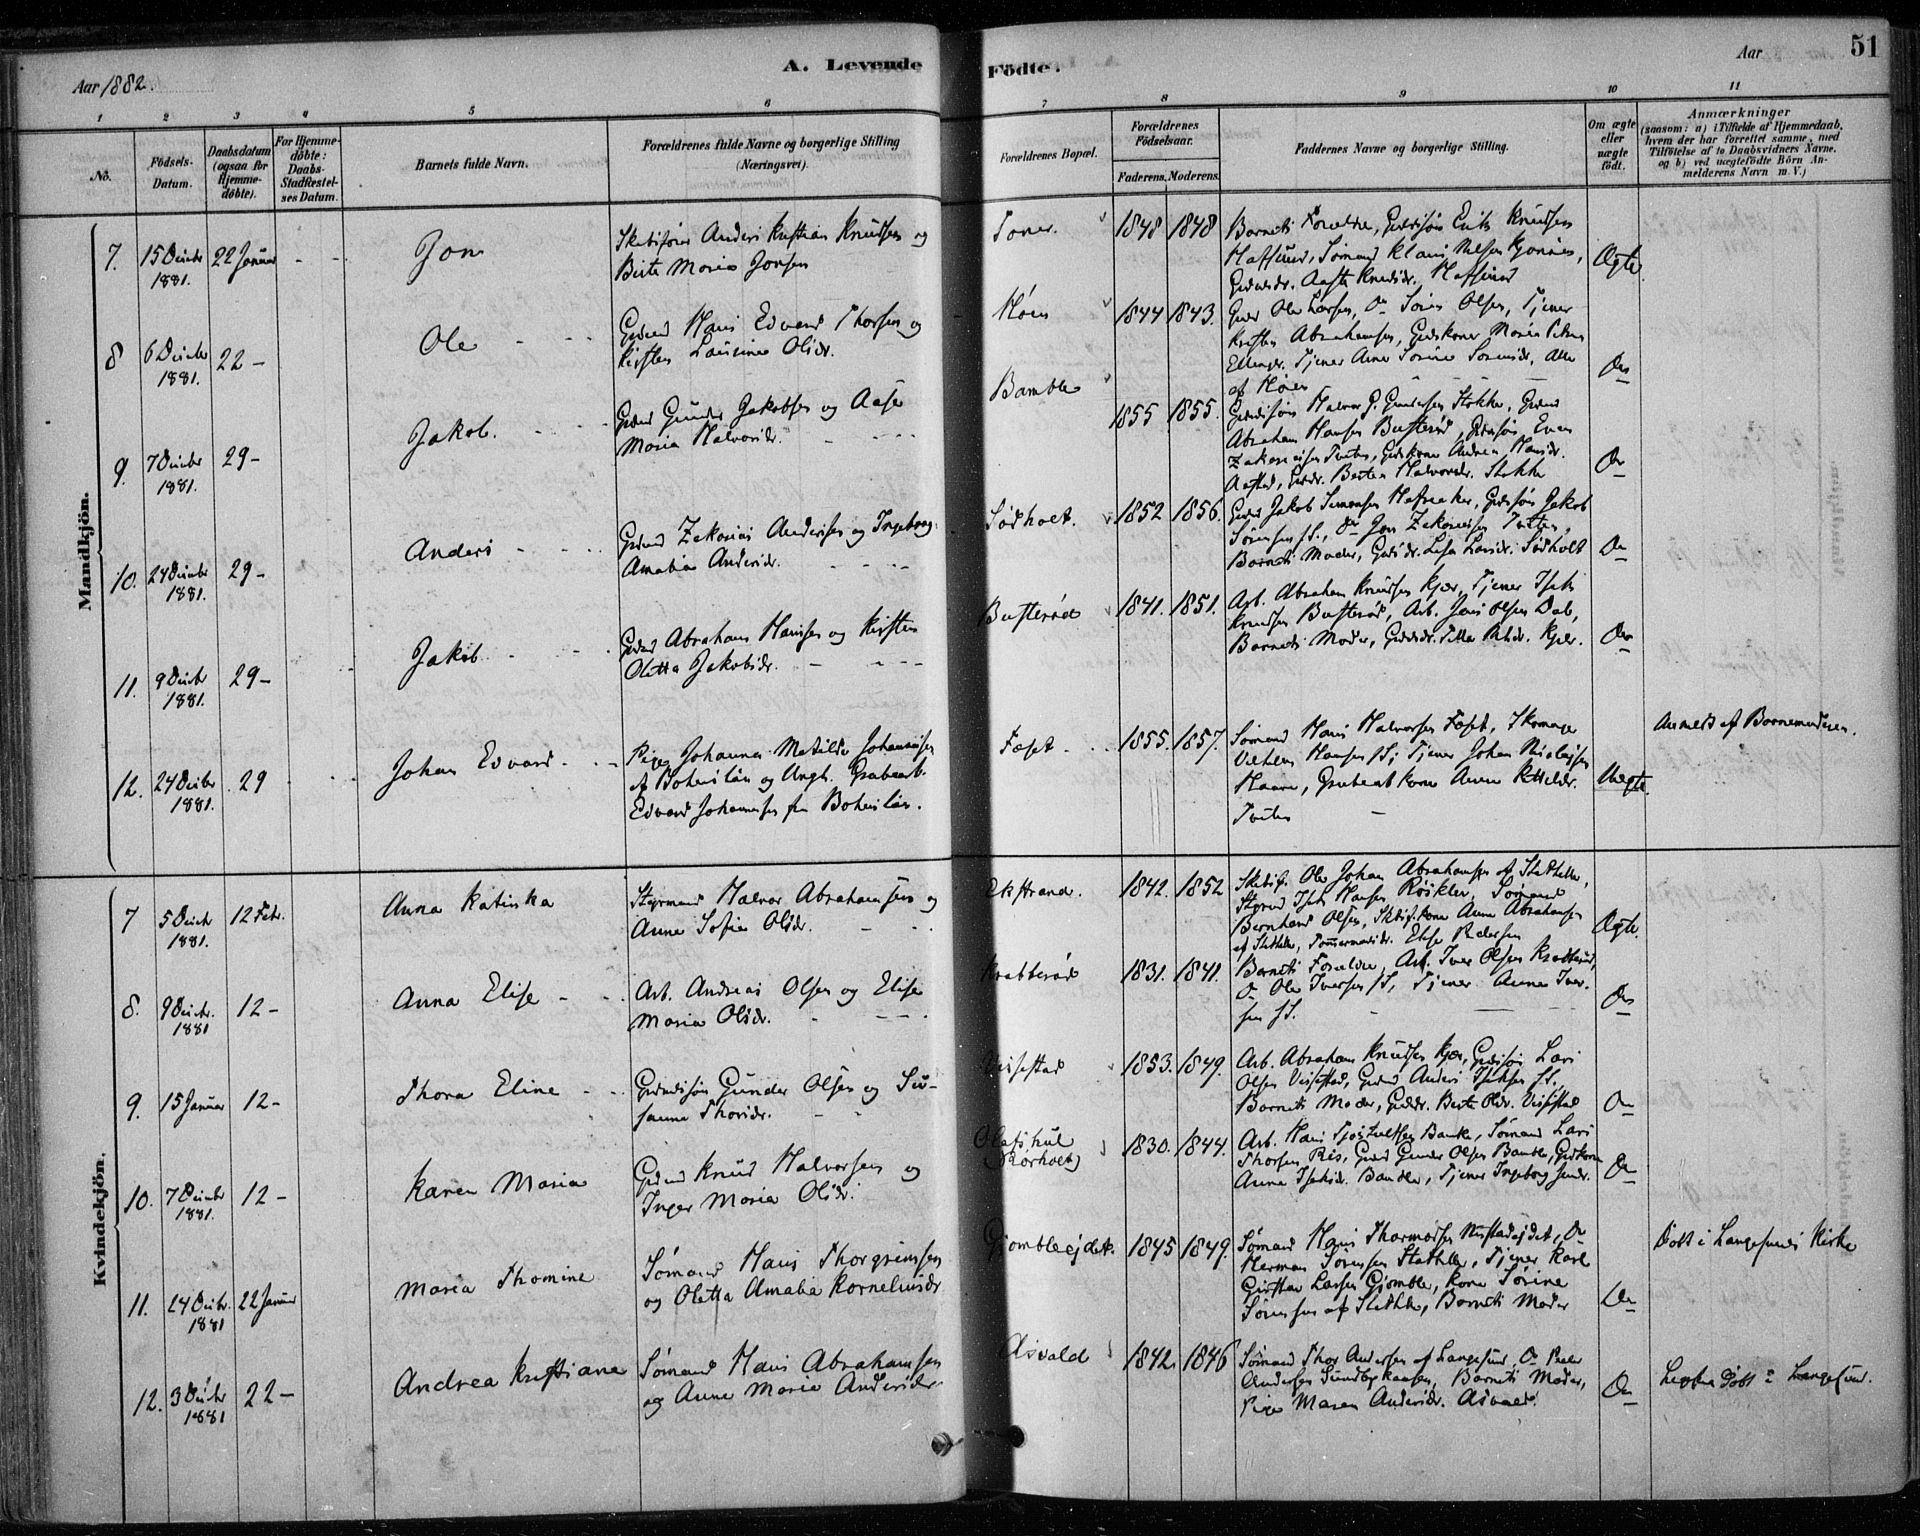 Aar 1882.
A. Levende
Födte.
Aar
51
1 2 3 4 5 6 7 8 9 10 11
No.
Födsels-Datum.
Daabsdatum (ogsaa for Hjemmedöbte).
For Hjemmedöbte: Daabs-Stadfæstelses Datum.
Barnets fulde Navn.
Forældrenes fulde Navne og borgerlige Stilling (Næringsvei).
Forældrenes Bopæl.
Forældrenes Födselsaar.
Faderens. Moderens.
Faddernes Navne og borgerlige Stilling.
Om ægte eller uægte födt.
Anmærkninger
(saasom: a) i Tilfælde af Hjemmedaab, hvem der har forrettet samme, med Tilföielse af to Daabsvidners Navne. og b) ved uægtefödte Börn Anmelderens Navn m. V.)
Mandkjön.
7. 15 Decbr 1881. 22 Januar - - Jon
Anders Kristian Knudsen og
Berte Maria Jonsen
Toner. 1848 1848
Barnets Forældre, Gdmdsøn Erik Knudsen
Hafsund, Sømand Klaus Nelsen
Hafsund
Ægte
8 6 Decbr 1881. 22 - Ole - -
Gdmd Hans Edvard Thorsen og
Kirsten Lausine Olsdr.
1844 1843.
Gdmd Ole Larsen, Do Søren Olsen, Tjener
Kristen Abrahamsen, Gdskone Maria
Tjener Anne Sorine Sørensdr, Alle
af
Do
9. 7 Decbr 1881. 29 - Jakob. - -
Gdmd Gunder Jakobsen og Aase
Maria Halvorsdr. - - -
Bamble 1855 1855.
Gdmdsøn Halvor G. Gundersen Stokke, Gdmd
Abraham Hansen Busterød, Gdmsøn Even
Zakariasen Tveten, Gdskone Andrea Hansdr.
Aasted, Gdmdr. Berten Halvorsdr. Stokke
Do
10. 24 Decbr 1881. 29 - Anders - -
Gdmd Zakarias Andersen og Ingeborg
Amalia Andersdr. - - -
Sødholt. 1852 1856.
Gdmd Jakob Simonsen Hafsaaker, Gdmdsøn Jakob
Sørensen SS., Do Jon Zakariasen Tveten,
Barnets Moder, Gdmdsdr. Lisa Larsdr. Sødholt
Do
11. 9 Decbr 1881. 29 - Jakob. - -
Gdmd Abraham Hansen og Kirsten
Oletta Jakobsdr. - - -
Busterød 1841. 1851.
Arb. Abraham Knudsen Kjær, Tjener Isak
Knudsen Busterød, Arb. Jens Olsen Dal,
Barnets Moder, Kjær.
Do
12. 24 Decbr 1881. 29 - - Johan Edvard. - -
Pige Johanna Matilde Johannsen
af Bohuslän og Ungk. Grubearb.
Edvard Johannsen fra Bohuslän.
Foset. 1855. 1857.
Sømand Hans Halvorsen Foset, Skomager
Vilhelm Hansen SS; Tjener Johan Nicolaisen
Haave, Grubearb Kone Anne Kittilsdr.
Tveten -
Uægte.
Anmeldt af Barnemoderen.
Kvindekjön.
7 5 Decbr 1881. 12 Febr. Anna Katinka
Styrmand Halvor Abrahamsen og
Anne Sofie Olsdr. - - -
Ekstrand. 1842. 1852
Skibsf. Ole Johan Abrahamsen af Stathelle,
Styrmd Isak Hansen Røsikler, Sømand
Bernhard Olsen, Skibsf.kone Anne Abrahamsen
af Stathelle, Tømmermdsdr. Elise Pedersen
Ægte.
8. 9 Decbr. 1881 12 - Anna Elise - -
Arb. Andreas Olsen og Elise
Maria Olsdr. - - -
Krabberød 1831. 1841.
Barnets Forældre, Arb. Iver Olsen Krabberød,
Do Ole Iversen SS., Tjener Anne Iver-
sen SS.
Do
9. 15 Januar 12 - Thora Eline - -
Gdmdsøn Gunder Olsen og Su-
sanne Thorsdr. - -
Vissestad 1853. 1849.
Arb. Abraham Knudsen Kjær, Gdmdsøn Lars
Olsen Vissestad, Gdmd Anders Isaksen SS.,
Barnets Moder, Gdmdsdr. Berte Olsdr. Vissestad
Do
10. 7 Decbr 1881. 12 - Karen Maria
Gdmd Knud Halvorsen og
Inger Maria Olsdr.
Olafshul
(Rørholt)
1830. 1844.
Arb. Hans Tjostulfsen Banke, Sømand Lars
Thorsen Ris, Gdmd Gunder Olsen Bamble, Gdskone
Anne Isaksdr. Bamble, Tjener Ingeborg Jensdr.
Do
11. 24 Decbr. 1881 22 Januar Maria Thomine
Sømand Hans Thorgrimsen
og Oletta Amalia Korneliusdr
Gjømlesjdet. 1845 1849.
Sømand Hans Thormodsen Nustadejdet, Do
Herman Sørensen Stathelle, Tjener Karl
Gustav Larsen Gjømble, Kone Sørine
Sørensen af Stathelle, Barnets Moder
Do
Døbt i Langesunds Kirke
12. 3 Decbr 1881 22 - Andrea Kristiane
Sømand Hans Abrahamsen
og Anne Maria Andersdr.
Asvald 1842. 1846
Sømand Thor Andersen af Langesund, Do Peder
Andersen Sundbykaasen, Barnets Moder,
Pige Maren Andersdr. Asvald.
Do
døbt i Langesund.